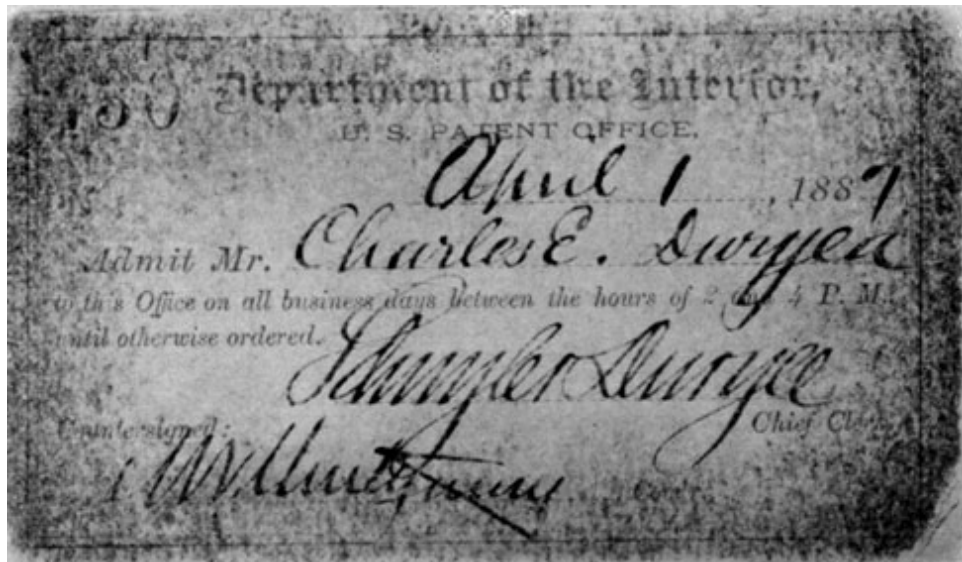 130
Department of the Interior,
U. S. PATENT OFFICE,
April 1, 1887
Admit Mr. Charles E. Duryea
to this Office on all business days between the hours of 2 and 4 P. M.
until otherwise ordered.
Schuyler Duryee
Chief Clerk.
Countersigned: